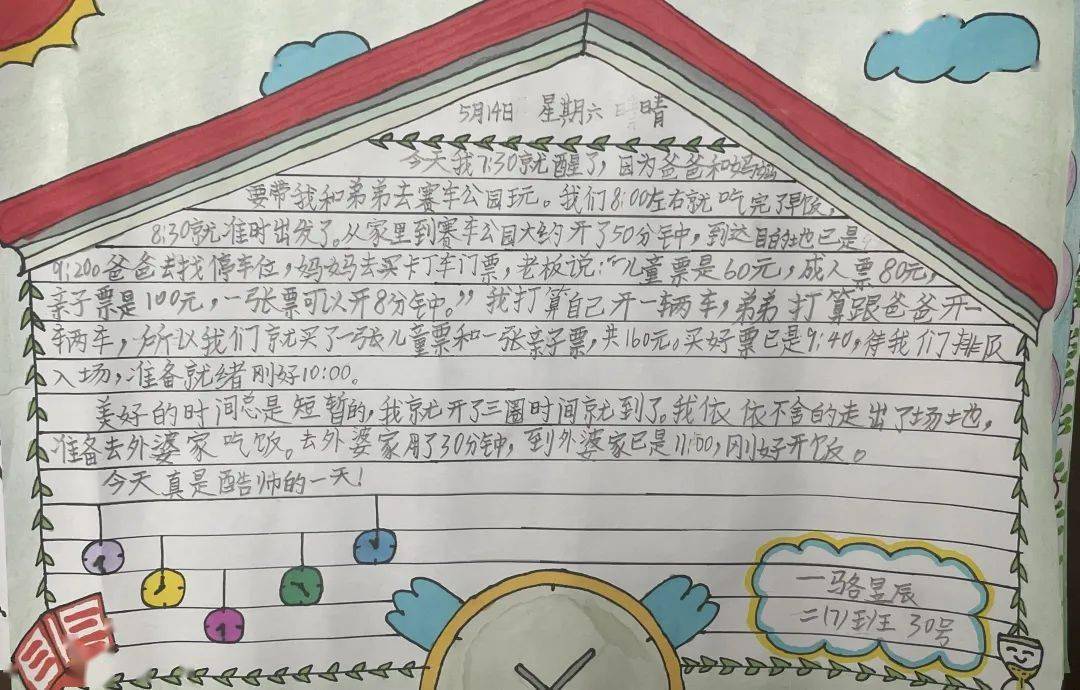 5月14日 星期六 晴
今天我7:30就醒了，因为爸爸和妈妈
要带我和弟弟去赛车公园玩。我们8:00左右就吃完了早饭，
8:30就准时出发了。从家里到赛车公园大约开了50分钟，到达目的地已是
9:20。爸爸去找停车位，妈妈去买卡丁车门票，老板说：“儿童票是60元，成人票80元，
亲子票是100元，一张票可以开8分钟。”我打算自己开一辆车，弟弟打算跟爸爸开一
辆车，所以我们就买了一张儿童票和一张亲子票，共160元。买好票已是9:40，待我们排队
入场，准备就绪刚好10:00。
美好的时间总是短暂的，我就开了三圈时间就到了。我依依不舍的走出了场地，
准备去外婆家吃饭。去外婆家用了30分钟，到外婆家已是11:00，刚好开饭。
今天真是酷帅的一天！
一骆昱辰
二(7)班 30号